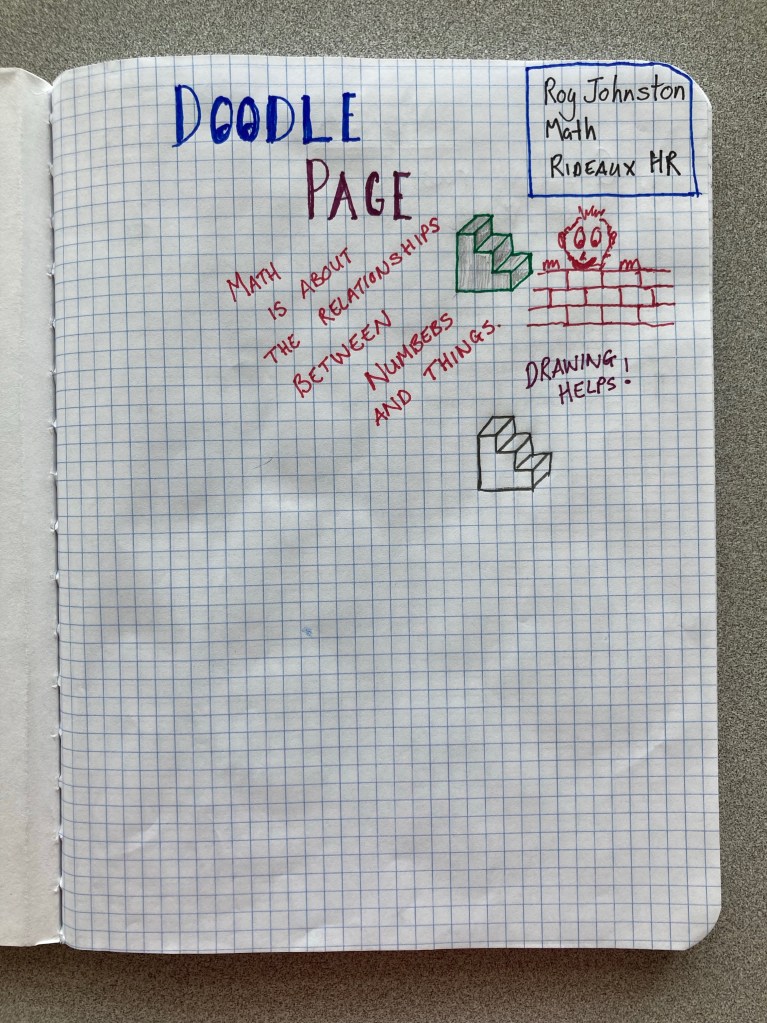 DOODLE
PAGE
Roy Johnston
Math
RIDEAUX HR
MATH
IS ABOUT
THE RELATIONSHIPS
BETWEEN
NUMBERS
AND THINGS.
DRAWING
HELPS!